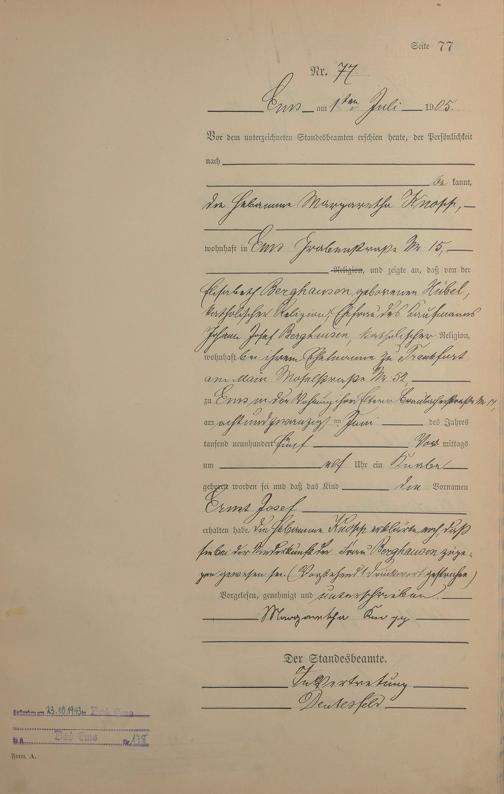 Seite 77
Nr. 77
Ems am 1ten Juli 1905.
Vor dem unterzeichneten Standesbeamten erschien heute, der Persönlichkeit
nach
be kannt,
die Hebamme Margaretha Knopp,
wohnhaft in Ems Grabenstraße Nr 15,
Religion, und zeigte an, daß von der
Elisabeth Berghausen, geborenen Hübel,
katholischer Religion, Ehefrau des Kaufmanns
Johann Josef Berghausen, katholischer Religion,
wohnhaft bei ihrem Ehemanne zu Frankfurt
am Main Moselstraße Nr 52,
zu Ems in der Wohnung ihrer Eltern Braubacherstraße Nr 17,
am achtundzwanzig ten Juni des Jahres
tausend neunhundert fünf Vor mittags
um elf Uhr ein Knabe
geboren worden sei und daß das Kind die Vornamen
Ernst Josef
erhalten habe. Die Hebamme Knopp erklärte noch daß
sie bei der Niederkunft der Frau Berghausen zuge-
gen gewesen sei. (Vorstehend 1 Druckwort gestrichen)
Vorgelesen, genehmigt und unterschrieben
Margaretha Knopp
Der Standesbeamte.
In Vertretung
23.10.1943 Bad Ems
Bad Ems Nr. 138
Form. A.